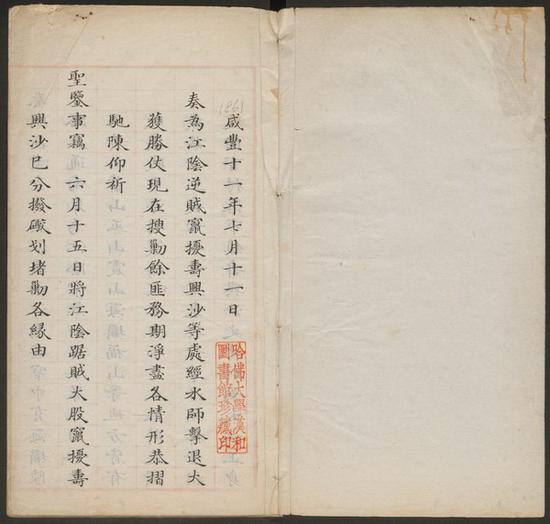 咸豐十一年七月十一日
奏為江陰逆賊竄擾壽興沙等處經水師擊退大
獲勝仗現在搜勦餘匪務期淨盡各情形恭摺
馳陳仰祈
聖鑒事竊六月十五日將江陰踞賊大股竄擾壽
興沙已分撥礮划堵勦各緣由
1861
哈佛大學漢和
圖書館珍藏印